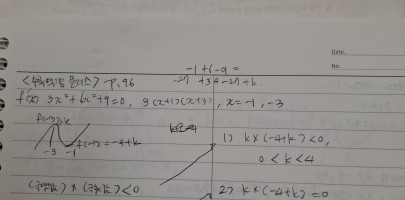 Date.
No.
-1+6-9=
-27 +54-27+k
p.96
f'(x) 3x²+6x²+9=0, 3(x+1)(x+3), x=-1, -3
f(-3)=k
-3 -1 f(-1)=-4+k
1) k×(-4+k)<0,
0<k<4
(극댓값)×(극솟값)<0
2) k×(-4+k)=0